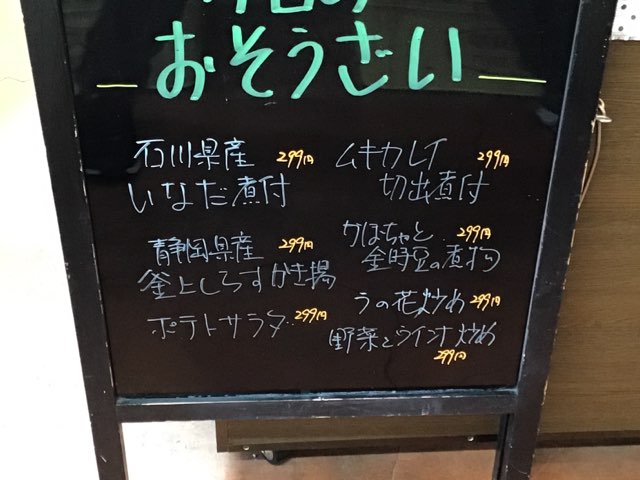 今日の
おそうざい
石川県産 299円
いなだ煮付
静岡県産 299円
釜上しらすかき揚
ポテトサラダ 299円
ムキカレイ 299円
切出煮付
かぼちゃと 299円
金時豆の煮物
うの花炒め 299円
野菜とウインナ炒め
299円